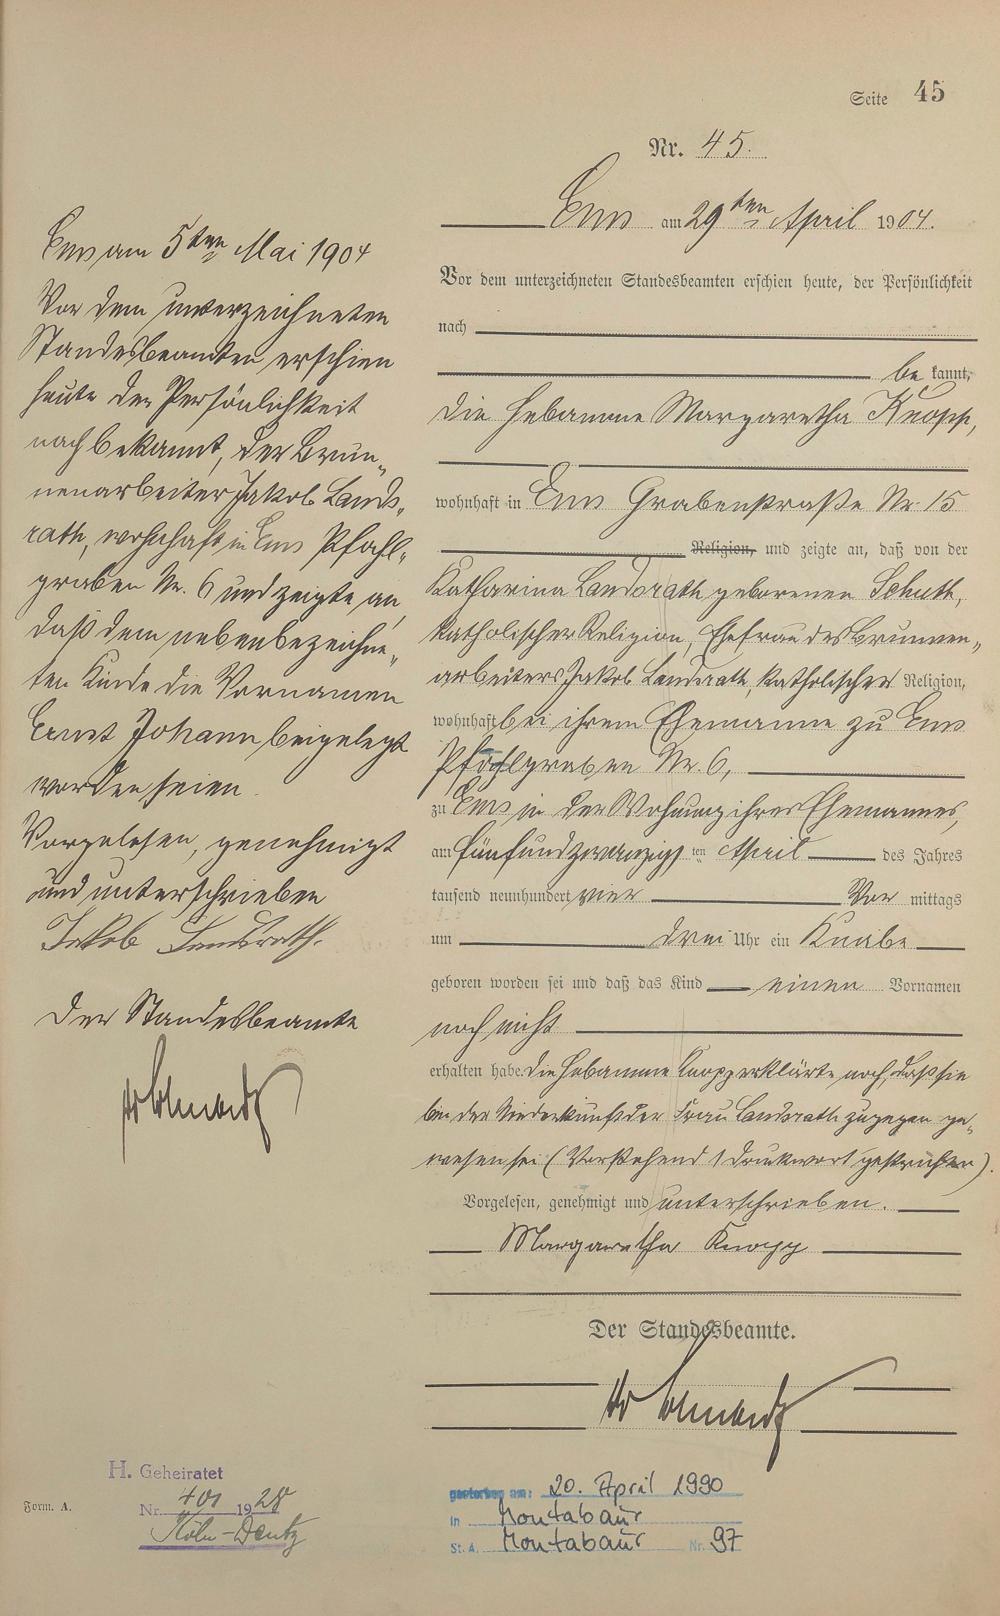 Seite 45
Nr. 45.
Ems am 29ten April 1904.
Vor dem unterzeichneten Standesbeamten erschien heute, der Persönlichkeit
nach
be kannt,
die Hebamme Margaretha Knopp,
wohnhaft in Ems Grabenstraße Nr. 15
Religion, und zeigte an, daß von der
Katharina Landsrath geborenen Schuth,
katholischer Religion, Ehefrau des Brunnen„
arbeiters Jakob Landsrath, katholischer Religion,
wohnhaft bei ihrem Ehemanne zu Ems
Pfahlgraben Nr. 6,
zu Ems in der Wohnung ihres Ehemannes,
am fünfundzwanzigsten ten April des Jahres
tausend neunhundert vier Vor mittags
um drei Uhr ein Knabe
geboren worden sei und daß das Kind einen Vornamen
noch nicht
erhalten habe. Die Hebamme Knopp erklärte noch, daß sie
bei der Niederkunft der Frau Landsrath zugegen ge„
wesen sei (Vorstehend 1 Druckwort gestrichen).
Vorgelesen, genehmigt und unterschrieben.
Margaretha Knopp
Der Standesbeamte.
Ems am 5ten Mai 1904
Vor dem unterzeichneten
Standesbeamten erschien
heute der Persönlichkeit
nach bekannt, der Brun„
nenarbeiter Jakob Lands„
rath, wohnhaft in Ems Pfahl„
graben Nr. 6 und zeigte an,
daß dem nebenbezeichne„
ten Kinde die Vornamen
Ernst Johann beigelegt
worden seien.
Vorgelesen, genehmigt
und unterschrieben
Jakob Landsrath.
Der Standesbeamte
H. Geheiratet
Nr. 401 1928
Köln-Deutz
Form. A.
gestorben am: 20. April 1990
in Montabaur
St. A. Montabaur Nr. 97